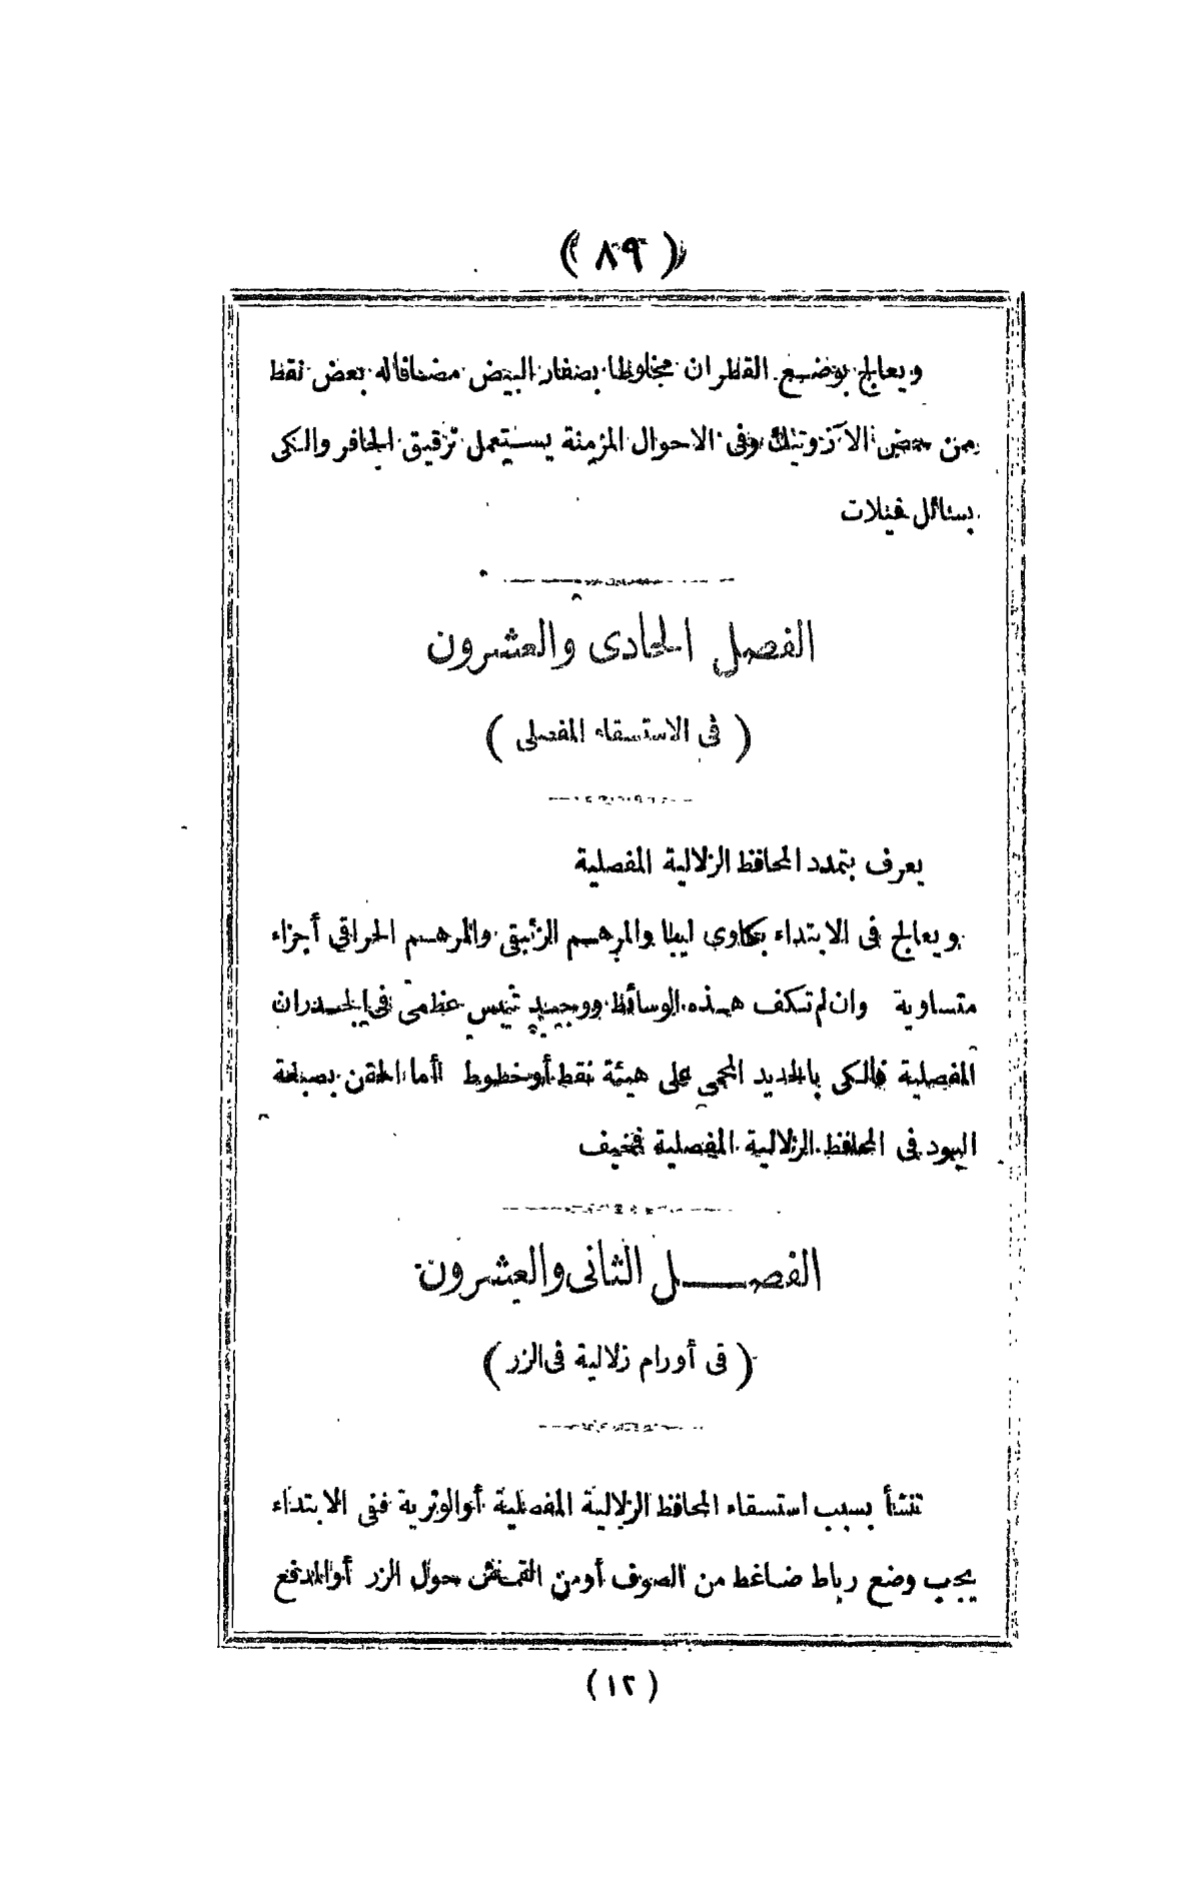 ( ٨٩ )
ويعالج بوضع القطران مخلوطا بصفار البيض مضافا له بعض نقط
من حمض الآزوتيك وفى الاحوال المزمنة يستعمل ترقيق الحافر والكى
بسائل فيلات
الفصل الحادى والعشرون
( فى الاستسقاء المفصلى )
يعرف بتمدد المحافظ الزلالية المفصلية
ويعالج فى الابتداء بكاوى ليبا والمرهم الزئبقى والمرهم الحراقى أجزاء
متساوية وان لم تكف هذه الوسائط ووجد تيبس عظمى فى الجدران
المفصلية فالكى بالحديد المحمى على هيئة نقط أوخطوط أما الحقن بصبغة
اليود فى المحافظ الزلالية المفصلية فمخيف
الفصل الثانى والعشرون
( فى أورام زلالية فى الزر )
تنشأ بسبب استسقاء المحافظ الزلالية المفصلية أوالوترية ففى الابتداء
يجب وضع رباط ضاغط من الصوف أومن القماش حول الزر أوالمدفع
( ١٢ )